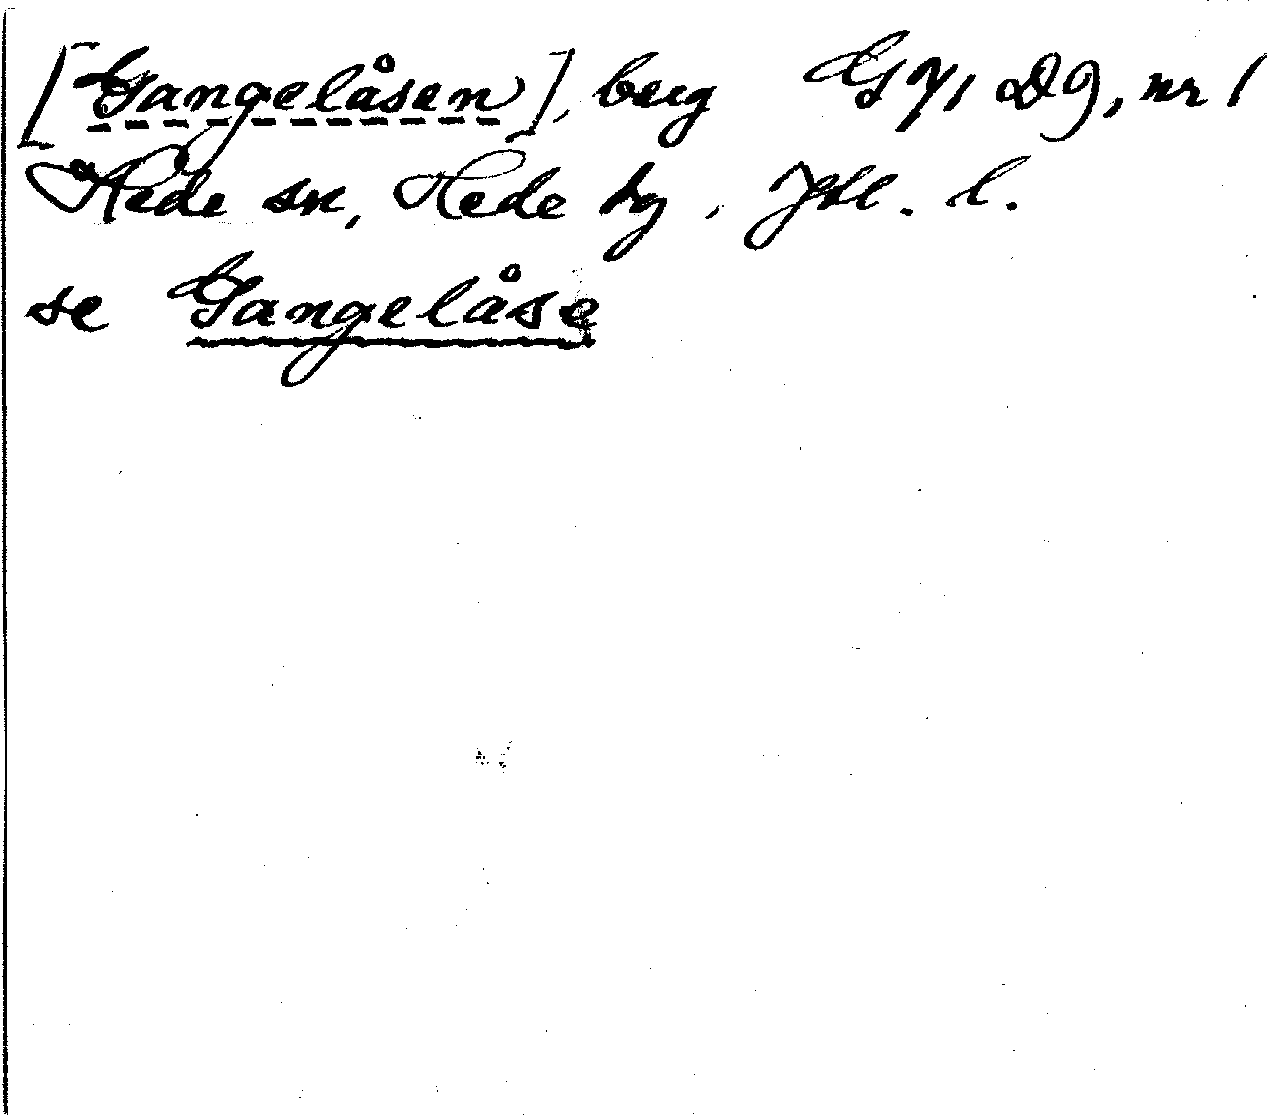 [Gangelåsen], berg G 71 D9, nr 1
Hede sn, Hede hg, Jtl. l.
se Gangelåse